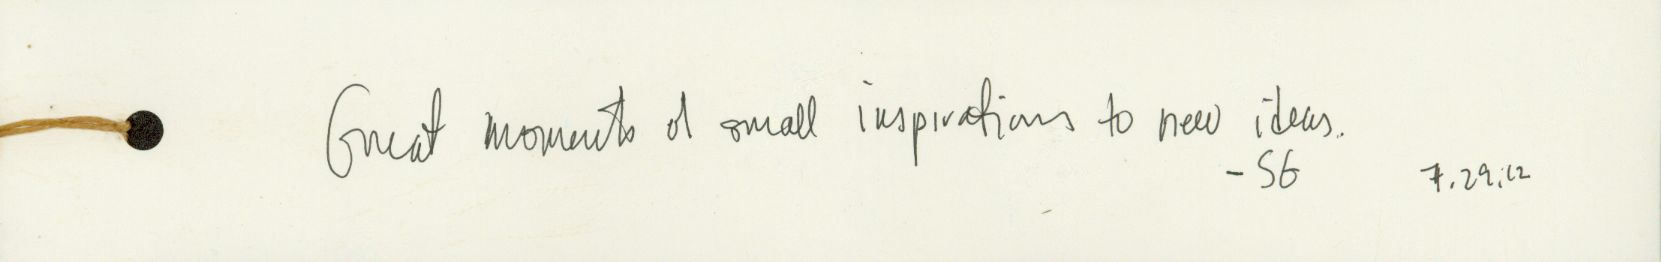 Great moments of small inspirations to new ideas.
- SG 7.29.12